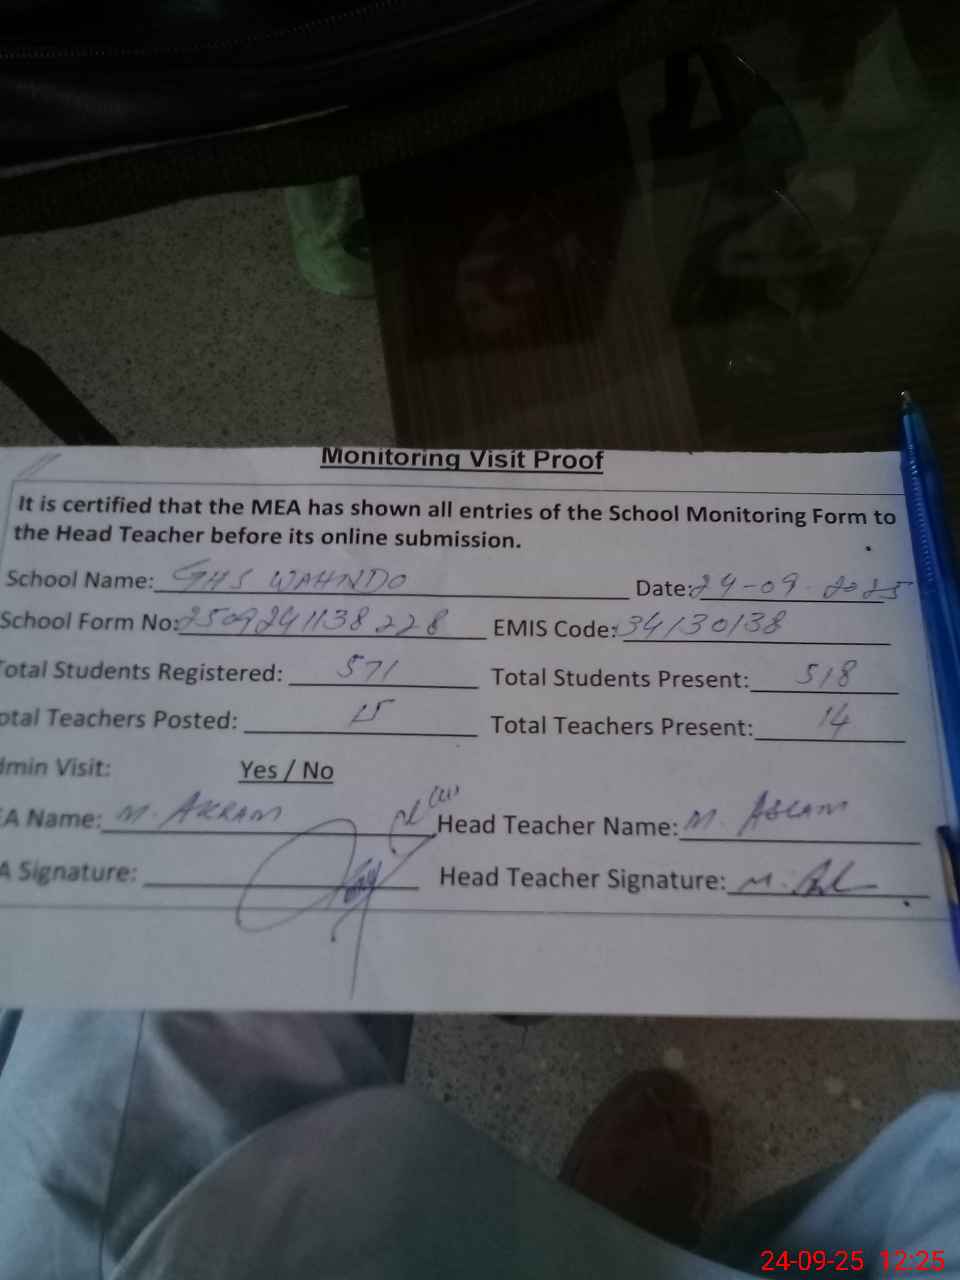 Monitoring Visit Proof
It is certified that the MEA has shown all entries of the School Monitoring Form to
the Head Teacher before its online submission.
School Name: GHS WAHNDO Date: 24-09-2025
School Form No: 2509241138228 EMIS Code: 34130138
otal Students Registered: 571 Total Students Present: 518
otal Teachers Posted: 15 Total Teachers Present: 14
dmin Visit: Yes / No
EA Name: M. AKRAM Head Teacher Name: M. ASLAM
A Signature: Head Teacher Signature:
24-09-25 12:25